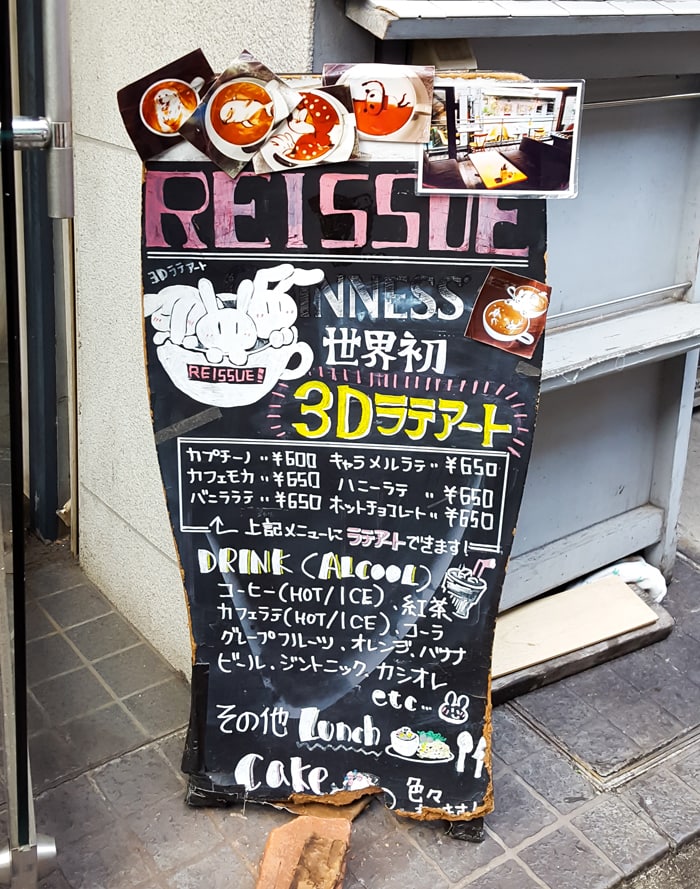 REISSUE
3Dラテアート
INNESS
REISSUE!
世界初
3Dラテアート
カプチーノ〃¥600 キャラメルラテ〃¥650
カフェモカ〃¥650 ハニーラテ 〃¥650
バニララテ〃¥650 ホットチョコレート〃¥650
上記メニューにラテアートできます!
DRINK (ALCOOL)
コーヒー(HOT/ICE)、紅茶
カフェラテ(HOT/ICE)、コーラ
グレープフルーツ、オレンヂ、バナナ
ビール、ジントニック、カシオレ
etc...
その他 Lunch
Cake
色々